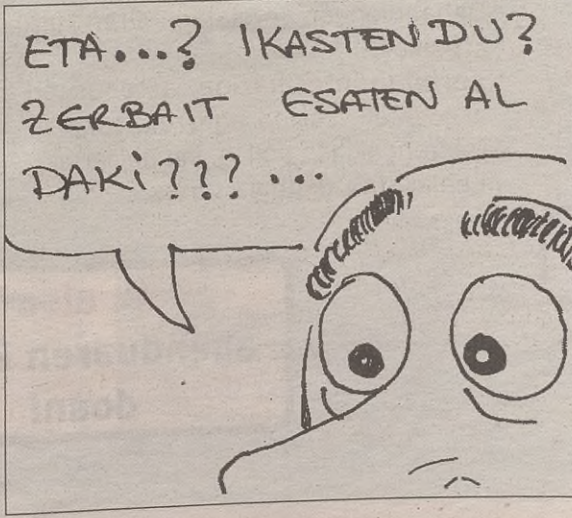 ETA...? IKASTEN DU?
ZERBAIT ESATEN AL
DAKi??? ...